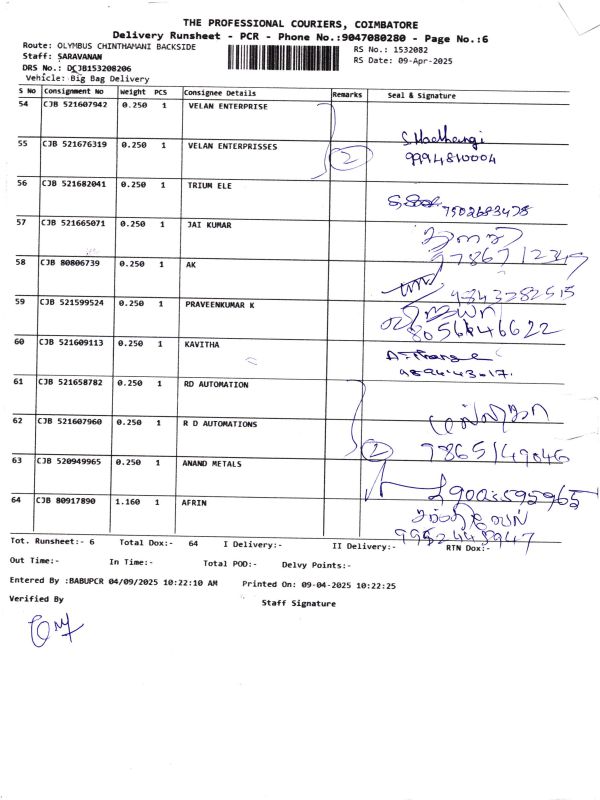 THE PROFESSIONAL COURIERS, COIMBATORE
Delivery Runsheet - PCR - Phone No.:9047080280 - Page No.:6
Route: OLYMBUS CHINTHAMANI BACKSIDE
RS No.: 1532082
Staff: SARAVANAN
RS Date: 09-Apr-2025
DRS No.: DCJB153208206
Vehicle: Big Bag Delivery
S No Consignment No Weight PCS Consignee Details Remarks Seal & Signature
54 CJB 521607942 0.250 1 VELAN ENTERPRISE
55 CJB 521676319 0.250 1 VELAN ENTERPRISSES 2 9994810004
56 CJB 521682041 0.250 1 TRIUM ELE 7502683475
57 CJB 521665071 0.250 1 JAI KUMAR
58 CJB 80806739 0.250 1 AK 4343282515
59 CJB 521599524 0.250 1 PRAVEENKUMAR K
60 CJB 521609113 0.250 1 KAVITHA
61 CJB 521658782 0.250 1 RD AUTOMATION
62 CJB 521607960 0.250 1 R D AUTOMATIONS 2 7865149046
63 CJB 520949965 0.250 1 ANAND METALS
64 CJB 80917890 1.160 1 AFRIN
Tot. Runsheet:- 6 Total Dox:- 64 I Delivery:- II Delivery:- RTN Dox:-
Out Time:- In Time:- Total POD:- Delvy Points:-
Entered By :BABUPCR 04/09/2025 10:22:10 AM Printed On: 09-04-2025 10:22:25
Verified By Staff Signature